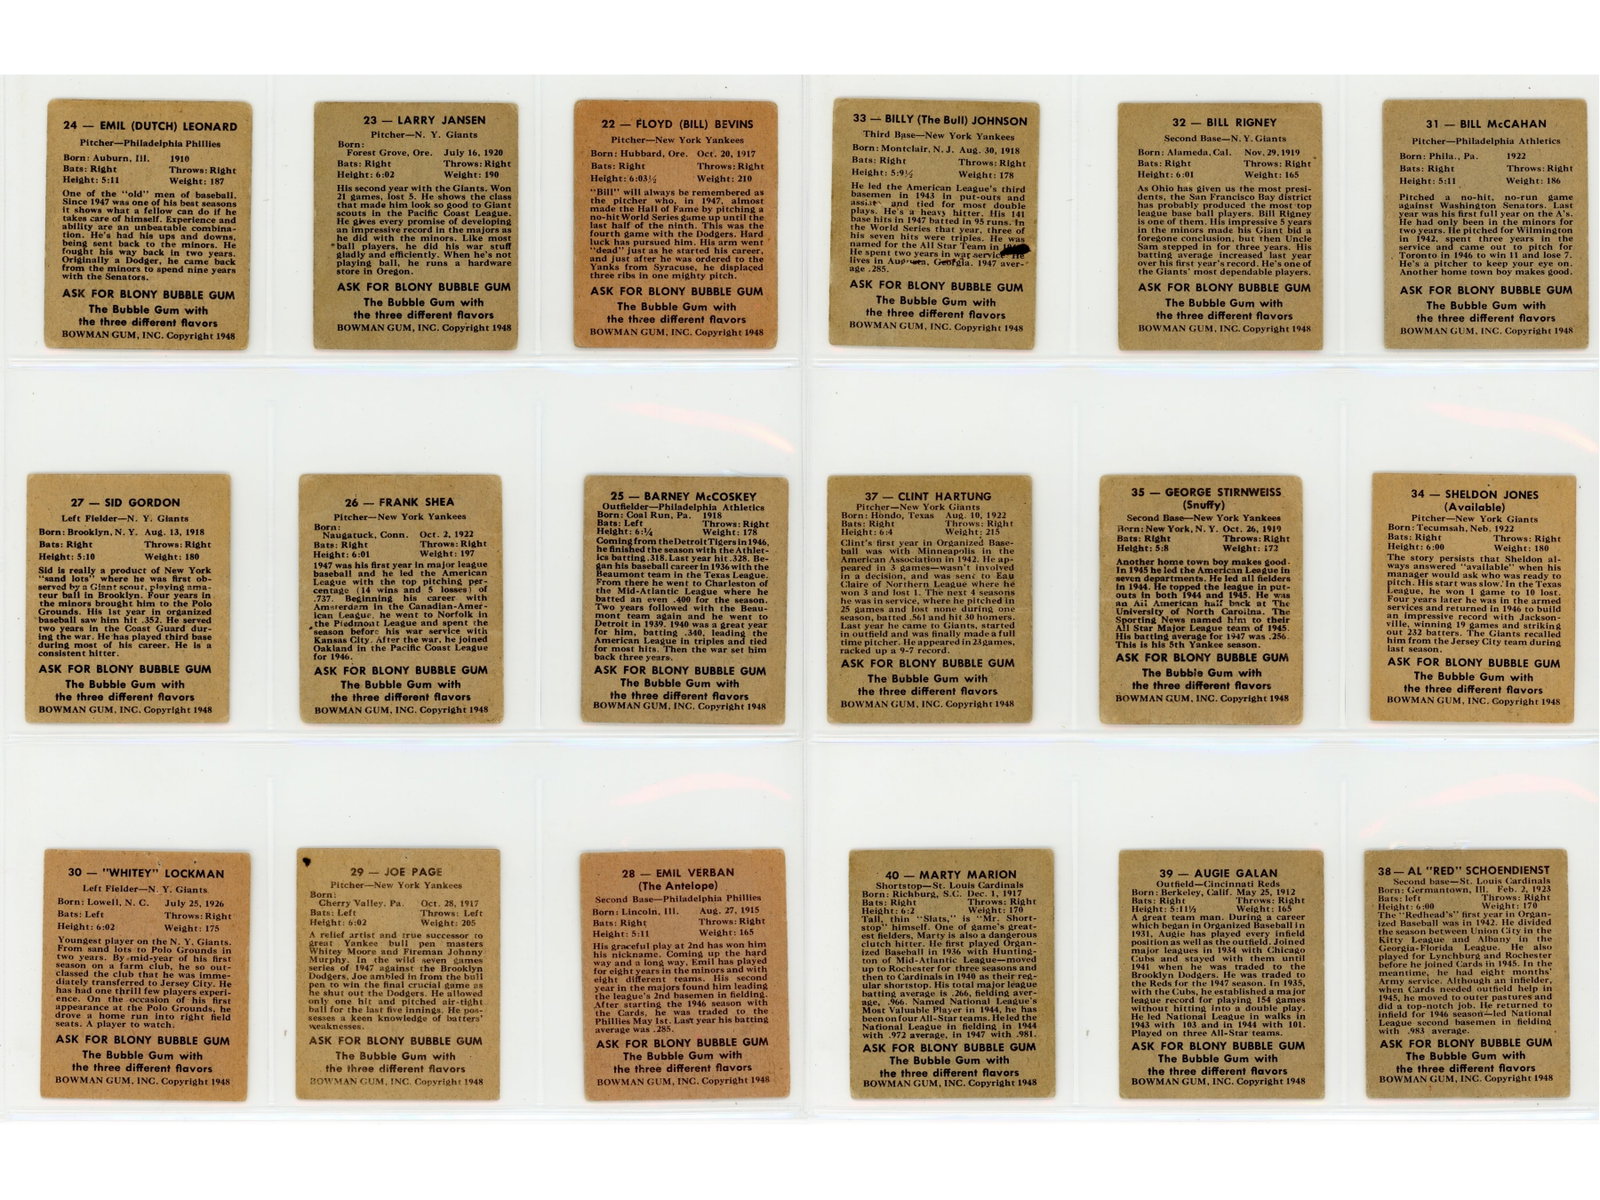 24 — EMIL (DUTCH) LEONARD
Pitcher—Philadelphia Phillies
Born: Auburn, Ill. 1910
Bats: Right Throws: Right
Height: 5:11 Weight: 187
One of the "old" men of baseball.
Since 1947 was one of his best seasons
it shows what a fellow can do if he
takes care of himself. Experience and
ability are an unbeatable combina-
tion. He's had his ups and downs,
being sent back to the minors. He
fought his way back in two years.
Originally a Dodger, he came back
from the minors to spend nine years
with the Senators.
ASK FOR BLONY BUBBLE GUM
The Bubble Gum with
the three different flavors
BOWMAN GUM, INC. Copyright 1948
23 — LARRY JANSEN
Pitcher—N. Y. Giants
Born:
Forest Grove, Ore. July 16, 1920
Bats: Right Throws: Right
Height: 6:02 Weight: 190
His second year with the Giants. Won
21 games, lost 5. He shows the class
that made him look so good to Giant
scouts in the Pacific Coast League.
He gives every promise of developing
an impressive record in the majors as
he did with the minors. Like most
ball players, he did his war stuff
gladly and efficiently. When he's not
playing ball, he runs a hardware
store in Oregon.
ASK FOR BLONY BUBBLE GUM
The Bubble Gum with
the three different flavors
BOWMAN GUM, INC. Copyright 1948
22 — FLOYD (BILL) BEVINS
Pitcher—New York Yankees
Born: Hubbard, Ore. Oct. 20, 1917
Bats: Right Throws: Right
Height: 6:03½ Weight: 210
"Bill" will always be remembered as
the pitcher who, in 1947, almost
made the Hall of Fame by pitching a
no-hit World Series game up until the
last half of the ninth. This was the
fourth game with the Dodgers. Hard
luck has pursued him. His arm went
"dead" just as he started his career,
and just after he was ordered to the
Yanks from Syracuse, he displaced
three ribs in one mighty pitch.
ASK FOR BLONY BUBBLE GUM
The Bubble Gum with
the three different flavors
BOWMAN GUM, INC. Copyright 1948
33 — BILLY (The Bull) JOHNSON
Third Base—New York Yankees
Born: Montclair, N. J. Aug. 30, 1918
Bats: Right Throws: Right
Height: 5:9½ Weight: 178
He led the American League's third
basemen in 1943 in put-outs and
assists and tied for most double
plays. He's a heavy hitter. His 141
base hits in 1947 batted in 95 runs. In
the World Series that year, three of
his seven hits were triples. He was
named for the All Star Team in
He spent two years in war service. He
lives in Augusta, Georgia. 1947 aver-
age .285.
ASK FOR BLONY BUBBLE GUM
The Bubble Gum with
the three different flavors
BOWMAN GUM, INC. Copyright 1948
32 — BILL RIGNEY
Second Base—N.Y. Giants
Born: Alameda, Cal. Nov. 29, 1919
Bats: Right Throws: Right
Height: 6:01 Weight: 165
As Ohio has given us the most presi-
dents, the San Francisco Bay district
has probably produced the most top
league base ball players. Bill Rigney
is one of them. His impressive 5 years
in the minors made his Giant bid a
foregone conclusion, but then Uncle
Sam stepped in for three years. His
batting average increased last year
over his first year's record. He's one of
the Giants' most dependable players.
ASK FOR BLONY BUBBLE GUM
The Bubble Gum with
the three different flavors
BOWMAN GUM, INC. Copyright 1948
31 — BILL McCAHAN
Pitcher—Philadelphia Athletics
Born: Phila., Pa. 1922
Bats: Right Throws: Right
Height: 5:11 Weight: 186
Pitched a no-hit, no-run game
against Washington Senators. Last
year was his first full year on the A's.
He had only been in the minors for
two years. He pitched for Wilmington
in 1942, spent three years in the
service and came out to pitch for
Toronto in 1946 to win 11 and lose 7.
He's a pitcher to keep your eye on.
Another home town boy makes good.
ASK FOR BLONY BUBBLE GUM
The Bubble Gum with
the three different flavors
BOWMAN GUM, INC. Copyright 1948
27 — SID GORDON
Left Fielder—N. Y. Giants
Born: Brooklyn, N. Y. Aug. 13, 1918
Bats: Right Throws: Right
Height: 5:10 Weight: 180
Sid is really a product of New York
"sand lots" where he was first ob-
served by a Giant scout, playing ama-
teur ball in Brooklyn. Four years in
the minors brought him to the Polo
Grounds. His 1st year in organized
baseball saw him hit .352. He served
two years in the Coast Guard dur-
ing the war. He has played third base
during most of his career. He is a
consistent hitter.
ASK FOR BLONY BUBBLE GUM
The Bubble Gum with
the three different flavors
BOWMAN GUM, INC. Copyright 1948
26 — FRANK SHEA
Pitcher—New York Yankees
Born:
Naugatuck, Conn. Oct. 2, 1922
Bats: Right Throws: Right
Height: 6:01 Weight: 197
1947 was his first year in major league
baseball and he led the American
League with the top pitching per-
centage (14 wins and 5 losses) of
.737. Beginning his career with
Amsterdam in the Canadian-Amer-
ican League, he went to Norfolk in
the Piedmont League and spent the
season before his war service with
Kansas City. After the war, he joined
Oakland in the Pacific Coast League
for 1946.
ASK FOR BLONY BUBBLE GUM
The Bubble Gum with
the three different flavors
BOWMAN GUM, INC. Copyright 1948
25 — BARNEY McCOSKEY
Outfielder—Philadelphia Athletics
Born: Coal Run, Pa. 1918
Bats: Left Throws: Right
Height: 6:¾ Weight: 178
Coming from the Detroit Tigers in 1946,
he finished the season with the Athlet-
ics batting .318. Last year hit .328. Be-
gan his baseball career in 1936 with the
Beaumont team in the Texas League.
From there he went to Charleston of
the Mid-Atlantic League where he
batted an even .400 for the season.
Two years followed with the Beau-
mont team again and he went to
Detroit in 1939. 1940 was a great year
for him, batting .340, leading the
American League in triples and tied
for most hits. Then the war set him
back three years.
ASK FOR BLONY BUBBLE GUM
The Bubble Gum with
the three different flavors
BOWMAN GUM, INC. Copyright 1948
37 — CLINT HARTUNG
Pitcher—New York Giants
Born: Hondo, Texas Aug. 10, 1922
Bats: Right Throws: Right
Height: 6:4 Weight: 215
Clint's first year in Organized Base-
ball was with Minneapolis in the
American Association in 1942. He ap-
peared in 3 games—wasn't involved
in a decision, and was sent to Eau
Claire of Northern League where he
won 3 and lost 1. The next 4 seasons
he was in service, where he pitched in
25 games and lost none during one
season, batted .561 and hit 30 homers.
Last year he came to Giants, started
in outfield and was finally made a full
time pitcher. He appeared in 23 games,
racked up a 9-7 record.
ASK FOR BLONY BUBBLE GUM
The Bubble Gum with
the three different flavors
BOWMAN GUM, INC. Copyright 1948
35 — GEORGE STIRNWEISS
(Snuffy)
Second Base—New York Yankees
Born: New York, N. Y. Oct. 26, 1919
Bats: Right Throws: Right
Height: 5:8 Weight: 172
Another home town boy makes good.
In 1945 he led the American League in
seven departments. He led all fielders
in 1944. He topped the league in put-
outs in both 1944 and 1945. He was
an All American half back at The
University of North Carolina. The
Sporting News named him to their
All Star Major League team of 1945.
His batting average for 1947 was .256.
This is his 5th Yankee season.
ASK FOR BLONY BUBBLE GUM
The Bubble Gum with
the three different flavors
BOWMAN GUM, INC. Copyright 1948
34 — SHELDON JONES
(Available)
Pitcher—New York Giants
Born: Tecumsah, Neb. 1922
Bats: Right Throws: Right
Height: 6:00 Weight: 180
The story persists that Sheldon al-
ways answered "available" when his
manager would ask who was ready to
pitch. His start was slow. In the Texas
League, he won 1 game to 10 lost.
Four years later he was in the armed
services and returned in 1946 to build
an impressive record with Jackson-
ville, winning 19 games and striking
out 232 batters. The Giants recalled
him from the Jersey City team during
last season.
ASK FOR BLONY BUBBLE GUM
The Bubble Gum with
the three different flavors
BOWMAN GUM, INC. Copyright 1948
30 — "WHITEY" LOCKMAN
Left Fielder—N. Y. Giants
Born: Lowell, N. C. July 25, 1926
Bats: Left Throws: Right
Height: 6:02 Weight: 175
Youngest player on the N. Y. Giants.
From sand lots to Polo Grounds in
two years. By mid-year of his first
season on a farm club, he so out-
classed the club that he was imme-
diately transferred to Jersey City. He
has had one thrill few players experi-
ence. On the occasion of his first
appearance at the Polo Grounds, he
drove a home run into right field
seats. A player to watch.
ASK FOR BLONY BUBBLE GUM
The Bubble Gum with
the three different flavors
BOWMAN GUM, INC. Copyright 1948
29 — JOE PAGE
Pitcher—New York Yankees
Born:
Cherry Valley, Pa. Oct. 28, 1917
Bats: Left Throws: Left
Height: 6:02 Weight: 205
A relief artist and true successor to
great Yankee bull pen masters
Whitey Moore and Fireman Johnny
Murphy. In the wild seven games
series of 1947 against the Brooklyn
Dodgers, Joe ambled in from the bull
pen to win the final crucial game as
he shut out the Dodgers. He allowed
only one hit and pitched air-tight
ball for the last five innings. He pos-
sesses a keen knowledge of batters'
weaknesses.
ASK FOR BLONY BUBBLE GUM
The Bubble Gum with
the three different flavors
BOWMAN GUM, INC. Copyright 1948
28 — EMIL VERBAN
(The Antelope)
Second Base—Philadelphia Phillies
Born: Lincoln, Ill. Aug. 27, 1915
Bats: Right Throws: Right
Height: 5:11 Weight: 165
His graceful play at 2nd has won him
his nickname. Coming up the hard
way and a long way, Emil has played
for eight years in the minors and with
eight different teams. His second
year in the majors found him leading
the league's 2nd basemen in fielding.
After starting the 1946 season with
the Cards, he was traded to the
Phillies May 1st. Last year his batting
average was .285.
ASK FOR BLONY BUBBLE GUM
The Bubble Gum with
the three different flavors
BOWMAN GUM, INC. Copyright 1948
40 — MARTY MARION
Shortstop—St. Louis Cardinals
Born: Richburg, S.C. Dec. 1, 1917
Bats: Right Throws: Right
Height: 6:2 Weight: 170
Tall, thin "Slats," is "Mr. Short-
stop" himself. One of game's great-
est fielders, Marty is also a dangerous
clutch hitter. He first played Organ-
ized Baseball in 1936 with Hunting-
ton of Mid-Atlantic League—moved
up to Rochester for three seasons and
then to Cardinals in 1940 as their reg-
ular shortstop. His total major league
batting average is .266, fielding aver-
age, .966. Named National League's
Most Valuable Player in 1944, he has
been on four All-Star teams. He led the
National League in fielding in 1944
with .972 average, in 1947 with .981.
ASK FOR BLONY BUBBLE GUM
The Bubble Gum with
the three different flavors
BOWMAN GUM, INC. Copyright 1948
39 — AUGIE GALAN
Outfield—Cincinnati Reds
Born: Berkeley, Calif. May 25, 1912
Bats: Left Throws: Right
Height: 5:11½ Weight: 165
A great team man. During a career
which began in Organized Baseball in
1931, Augie has played every infield
position as well as the outfield. Joined
major leagues in 1934 with Chicago
Cubs and stayed with them until
1941 when he was traded to the
Brooklyn Dodgers. He was traded to
the Reds for the 1947 season. In 1935,
with the Cubs, he established a major
league record for playing 154 games
without hitting into a double play.
He led National League in walks in
1943 with 103 and in 1944 with 101.
Played on three All-Star teams.
ASK FOR BLONY BUBBLE GUM
The Bubble Gum with
the three different flavors
BOWMAN GUM, INC. Copyright 1948
38 — AL "RED" SCHOENDIENST
Second base—St. Louis Cardinals
Born: Germantown, Ill. Feb. 2, 1923
Bats: left Throws: Right
Height: 6:00 Weight: 170
The "Redhead's" first year in Organ-
ized Baseball was in 1942. He divided
the season between Union City in the
Kitty League and Albany in the
Georgia-Florida League. He also
played for Lynchburg and Rochester
before he joined Cards in 1945. In the
meantime, he had eight months'
Army service. Although an infielder,
when Cards needed outfield help in
1945, he moved to outer pastures and
did a top-notch job. He returned to
infield for 1946 season—led National
League second basemen in fielding
with .983 average.
ASK FOR BLONY BUBBLE GUM
The Bubble Gum with
the three different flavors
BOWMAN GUM, INC. Copyright 1948